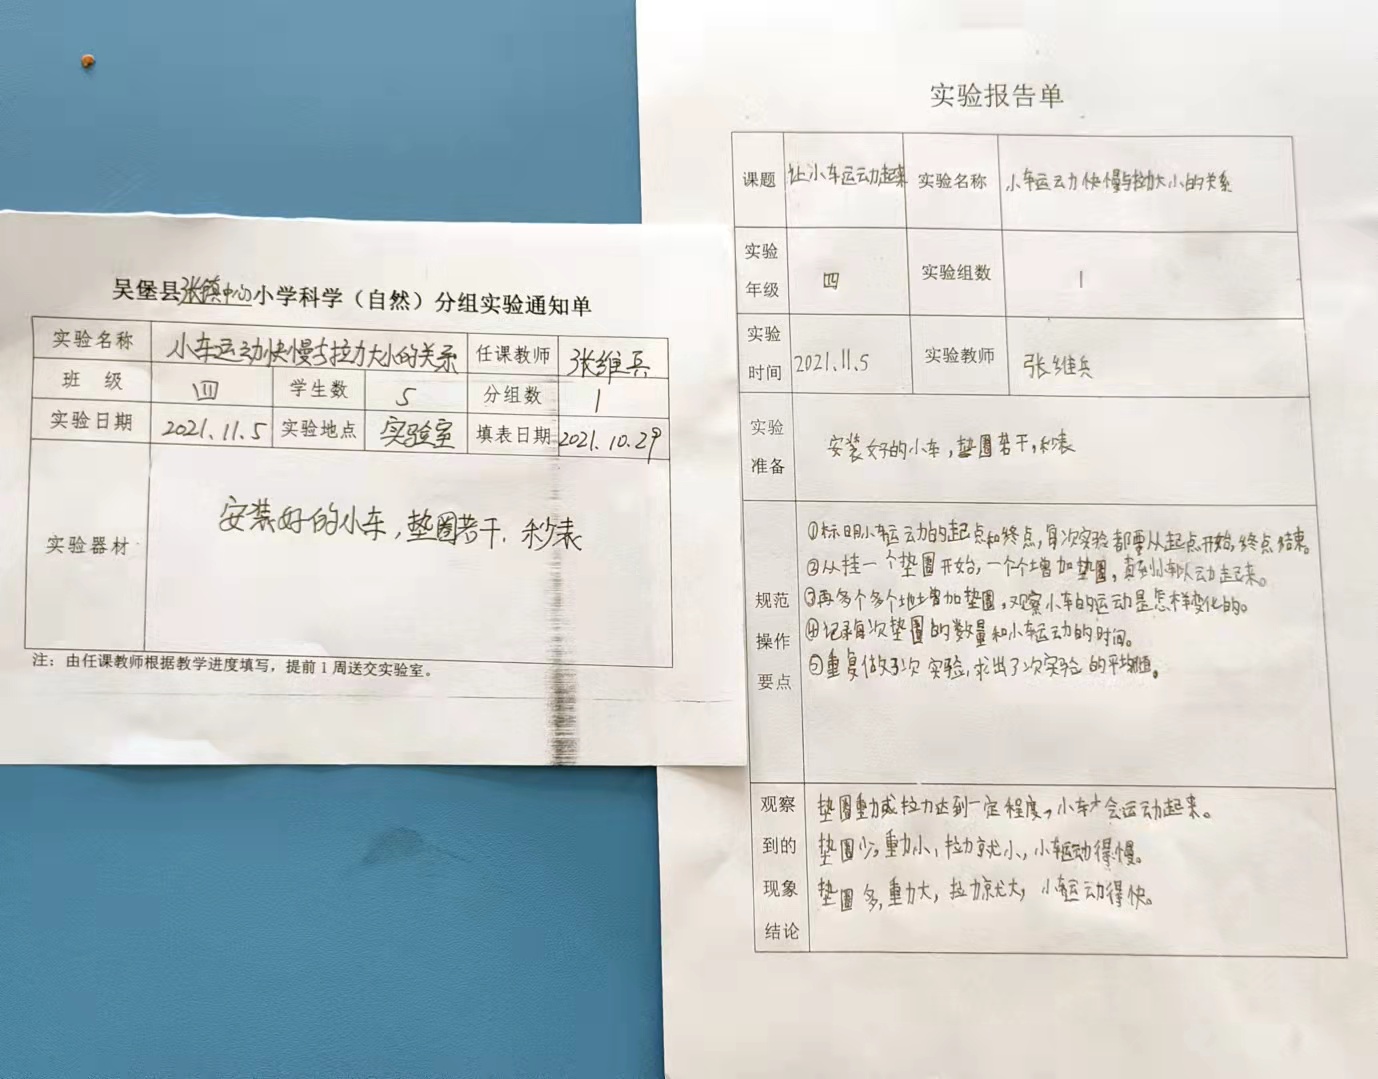 吴堡县张镇中心小学科学（自然）分组实验通知单
实验名称 小车运动快慢与拉力大小的关系 任课教师 张维兵
班 级 四 学生数 5 分组数 1
实验日期 2021.11.5 实验地点 实验室 填表日期 2021.10.29
实验器材 安装好的小车，垫圈若干，秒表
注：由任课教师根据教学进度填写，提前1周送交实验室。
实验报告单
课题 让小车运动起来 实验名称 小车运动快慢与拉力大小的关系
实验年级 四 实验组数 1
实验时间 2021.11.5 实验教师 张维兵
实验准备 安装好的小车，垫圈若干，秒表
规范操作要点
①标明小车运动的起点和终点，每次实验都要从起点开始，终点结束。
②从挂一个垫圈开始，一个个增加垫圈，直到小车从运动起来。
③再多个多个地增加垫圈，观察小车的运动是怎样变化的。
④记录每次垫圈的数量和小车运动的时间。
⑤重复做3次实验，求出了次实验的平均值。
观察到的现象结论
垫圈重力或拉力达到一定程度，小车才会运动起来。
垫圈少，重力小，拉力就小，小车运动得慢。
垫圈多，重力大，拉力就大，小车运动得快。